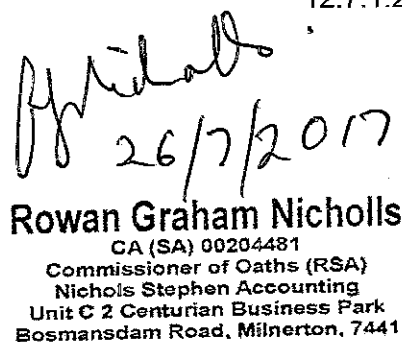 12.7.1.2
RG Nicholls
26/7/2017
Rowan Graham Nicholls
CA (SA) 00204481
Commissioner of Oaths (RSA)
Nichols Stephen Accounting
Unit C 2 Centurian Business Park
Bosmansdam Road, Milnerton, 7441